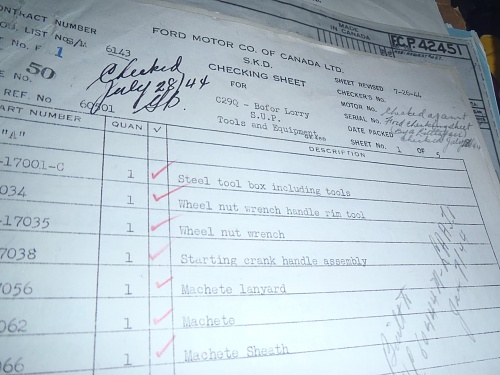 MADE
IN CANADA
E.C.P. 42451
CONTRACT NUMBER
6143
FORD MOTOR CO. OF CANADA LTD.
S.K.D.
CHECKING SHEET
FOR
C29Q - Bofor Lorry
S.U.P.
Tools and Equipment
No. F 1
NO. 50
REF. No 60601
Checked
July 28/44
SHEET REVISED 7-26-44
CHECKER'S No.
MOTOR No. Checked against
SERIAL No. Ford check sheet
DATE PACKED
SHEET No. 1 OF 5
PART NUMBER QUAN ✓ DESCRIPTION
"A"
-17001-C 1 ✓ Steel tool box including tools
034 1 ✓ Wheel nut wrench handle rim tool
-17035 1 ✓ Wheel nut wrench
7038 1 ✓ Starting crank handle assembly
7056 1 ✓ Machete lanyard
062 1 ✓ Machete
066 1 ✓ Machete Sheath